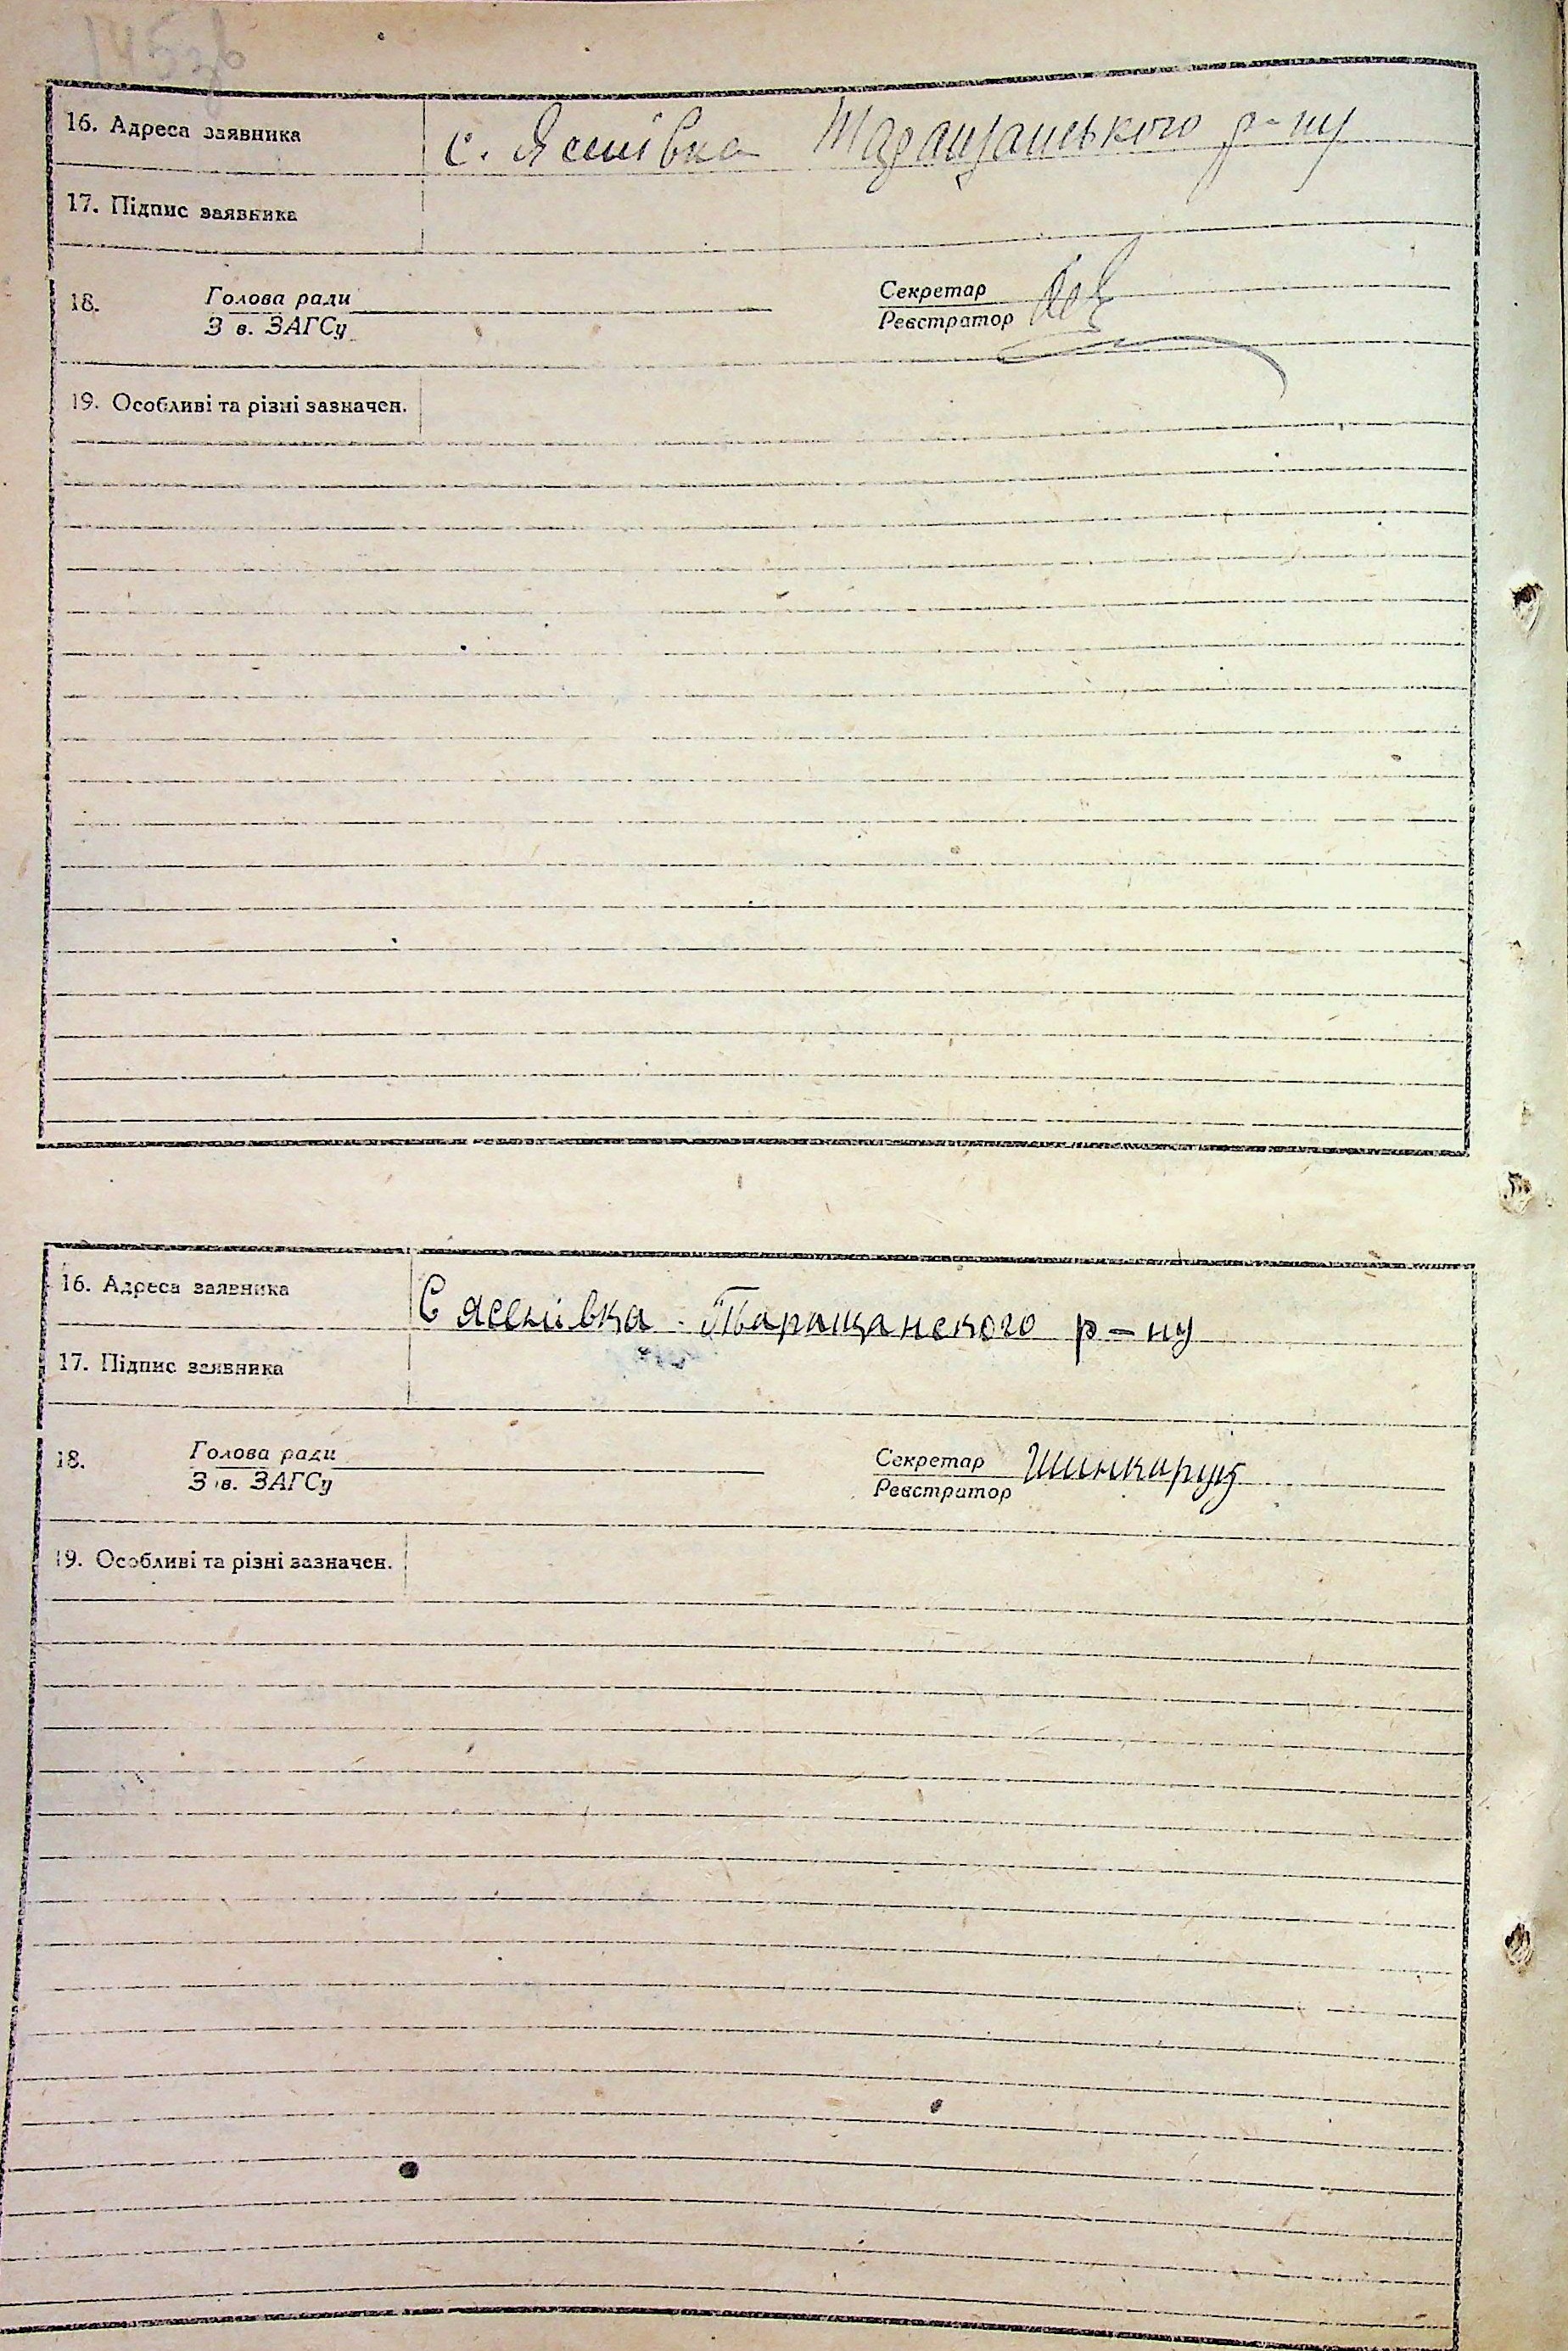 145зв
16. Адреса заявника
с. Ясенівка Таращанського р-ну
17. Підпис заявника
18. Голова ради
Зав. ЗАГСу
Секретар
Реєстратор
19. Особливі та різні зазначен.
16. Адреса заявника
С Ясенівка Таращанского р-ну
17. Підпис заявника
18. Голова ради
Зав. ЗАГСу
Секретар Шинкарук
Реєстратор
19. Особливі та різні зазначен.